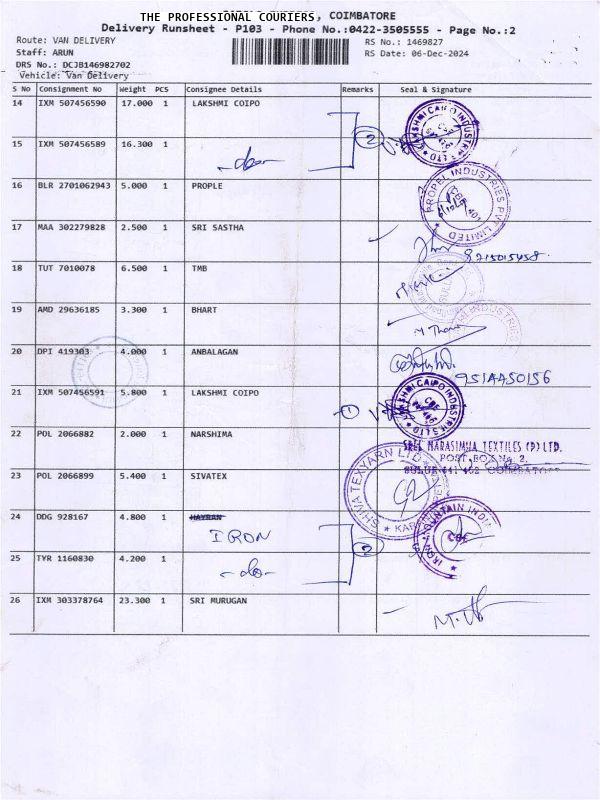 THE PROFESSIONAL COURIERS, COIMBATORE
Delivery Runsheet - P103 - Phone No.:0422-3505555 - Page No.:2
Route: VAN DELIVERY RS No.: 1469827
Staff: ARUN RS Date: 06-Dec-2024
DRS No.: DCJB146982702
Vehicle: Van Delivery
S No Consignment No Weight PCS Consignee Details Remarks Seal & Signature
14 IXM 507456590 17.000 1 LAKSHMI COIPO 2
15 IXM 507456589 16.300 1 -do-
16 BLR 2701062943 5.000 1 PROPLE PROPEL INDUSTRIES PVT LIMITED
17 MAA 302279828 2.500 1 SRI SASTHA
18 TUT 7010078 6.500 1 TMB
19 AMD 29636185 3.300 1 BHART
20 DPI 419303 4.000 1 ANBALAGAN
21 IXM 507456591 5.800 1 LAKSHMI COIPO 1
22 POL 2066882 2.000 1 NARSHIMA SREE NARASIMHA TEXTILES (P) LTD.
POST BOX No 2,
SULUR 641 402 COIMBATORE
23 POL 2066899 5.400 1 SIVATEX SHIVA TEXYARN LTD
24 DDG 928167 4.800 1 HAYRAN IRON 2 IRON MOUNTAIN INDIA
25 TYR 1160830 4.200 1 -do-
26 IXM 303378764 23.300 1 SRI MURUGAN